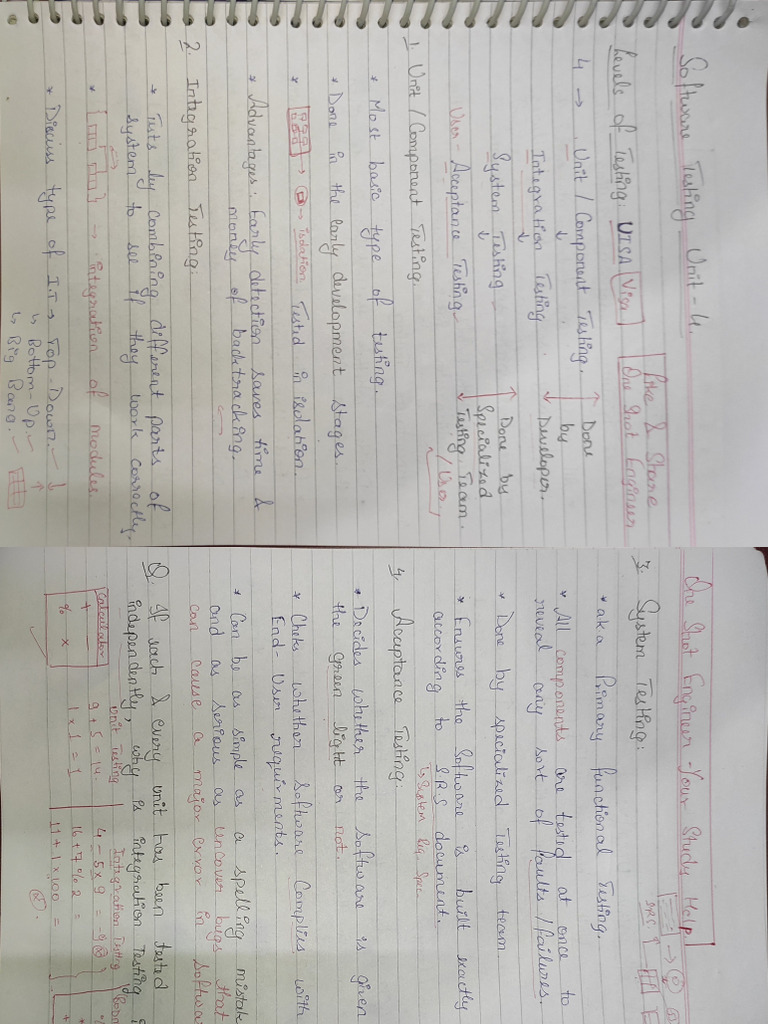 Software Testing Unit-4.
Like & Share
One Shot Engineer
Levels of Testing: UISA (Visa)
4 → Unit / Component Testing.
↓
Integration Testing
↓
System Testing
↓
User- Acceptance Testing
Done
by
Developer.
Done by
Specialized
Testing Team.
/User
1. Unit / Component Testing:
* Most basic type of testing.
* Done in the early development stages.
* → isolation Tested in isolation.
* Advantages: Early detection saves time &
money of backtracking.
2. Integration Testing:
* Tests by combining different parts of
system to see if they work correctly.
* → integration of modules
* Discuss type of I.T → Top-Down.
↳ Bottom-Up.
↳ Big Bang.
One Shot Engineer -Your Study Help
SRS
3. System Testing:
* aka Primary functional Testing.
* All components are tested at once to
reveal any sort of faults/failures.
* Done by specialized Testing team
* Ensures the Software is built exactly
according to SRS document.
↳ System Req. Spec.
4. Acceptance Testing:
* Decides whether the software is given
the green light or not.
* Cheks whether Software Complies with
End-User requirments.
* Can be as simple as a spelling mistake
and as serious as uncover bugs that
can cause a major error in Software
Q. If each & every unit has been tested
independently, why is integration Testing
Calculator
+ -
% x
Unit Testing
9+5=14.
1x1=1
Integration Testing
4-5x9=
16+7%2=
11+1x100=